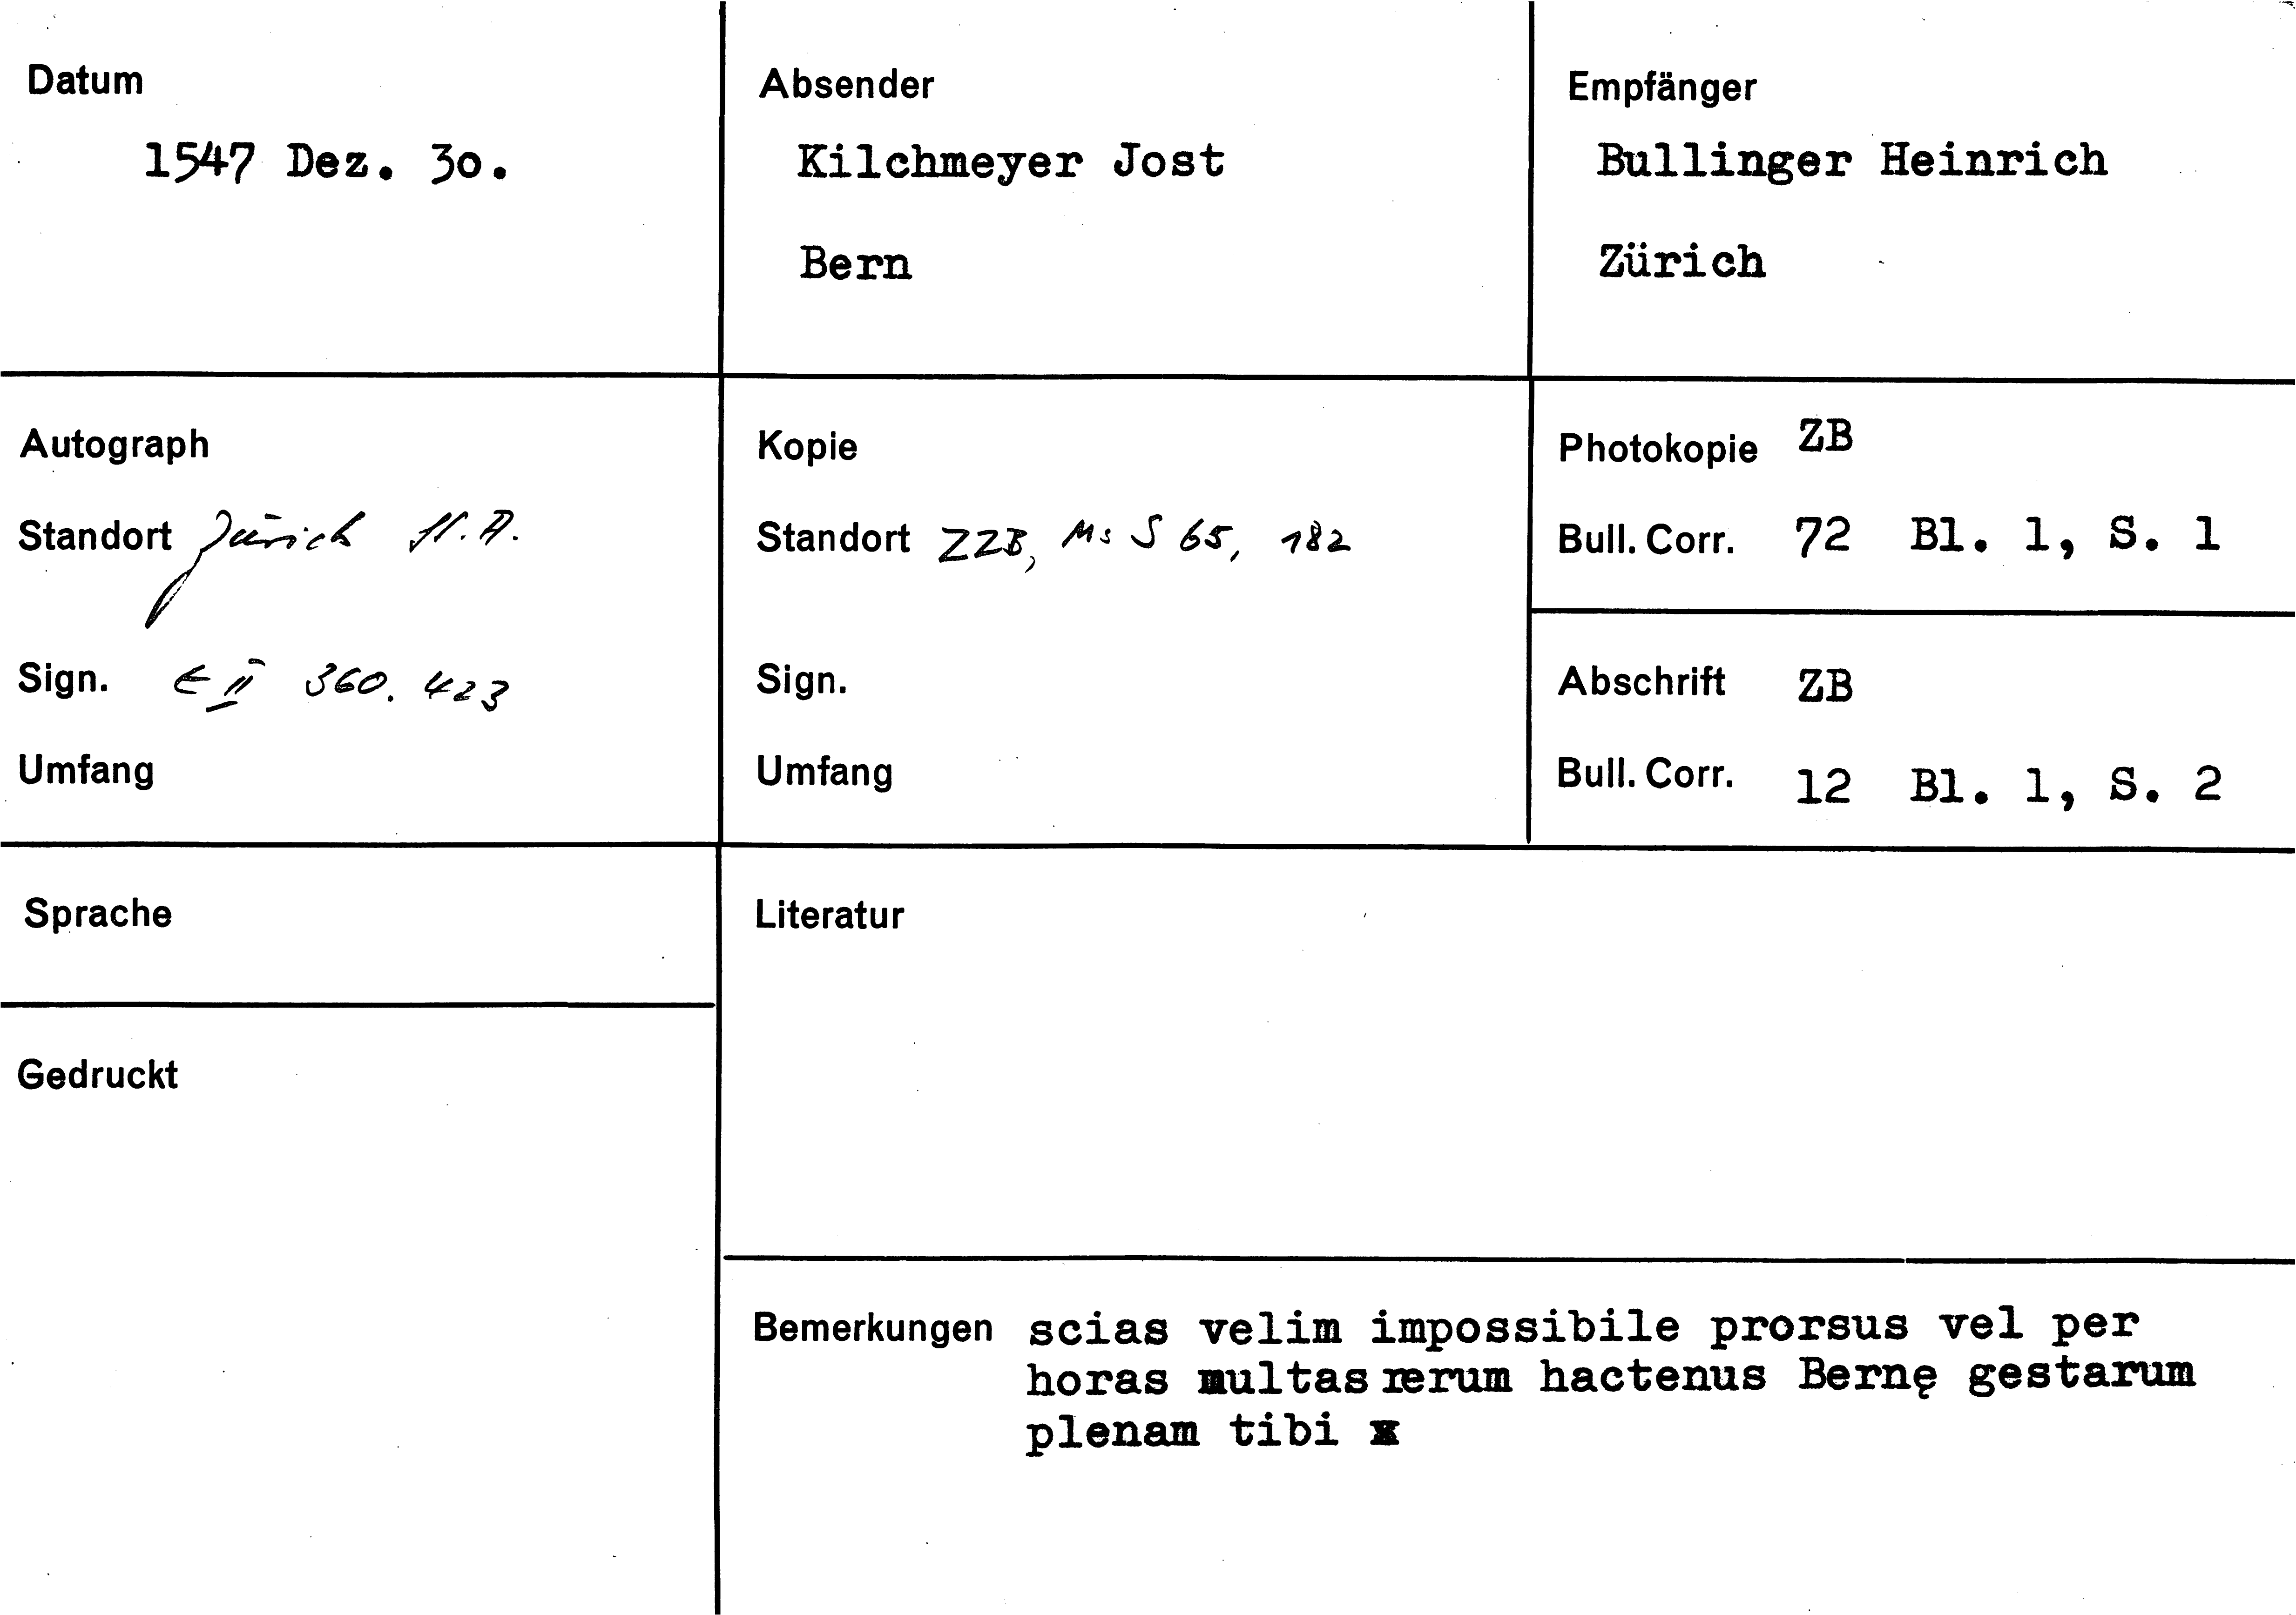 Datum
1547 Dez. 30.
Absender
Kilchmeyer Jost
Bern
Empfänger
Bullinger Heinrich
Zürich
Autograph
Standort Zürich St. A.
Sign. E II 360. 423
Umfang
Kopie
Standort ZZB, Ms S 65, 182
Sign.
Umfang
Photokopie ZB
Bull. Corr. 72 Bl. 1, S. 1
Abschrift ZB
Bull. Corr. 12 Bl. 1, S. 2
Sprache
Gedruckt
Literatur
Bemerkungen scias velim impossibile prorsus vel per
horas multas rerum hactenus Bernę gestarum
plenam tibi